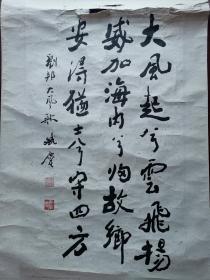 大風起兮雲飛揚
威加海内兮歸故鄉
安得猛士兮守四方
劉邦大風歌